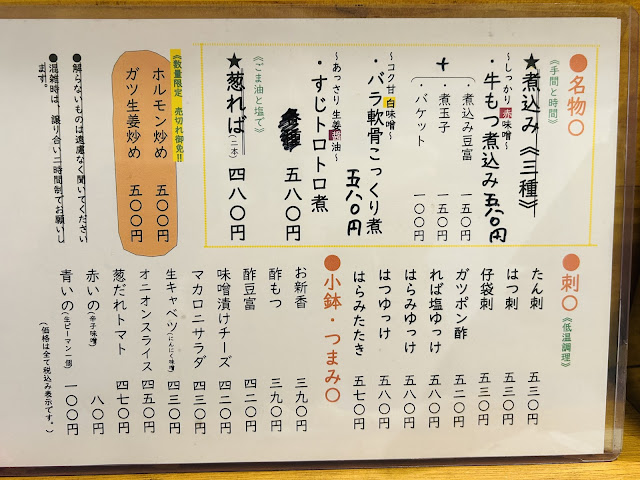 ●名物〇
《手間と時間》
★煮込み《三種》
～しっかり赤味噌～
・牛もつ煮込み 五八〇円
+
・煮込み豆富 一五〇円
・煮玉子 一五〇円
・バケット 一〇〇円
～コク甘白味噌～
・バラ軟骨こっくり煮
五八〇円
～あっさり生姜醤油～
・すじトロトロ煮
五八〇円
《ごま油と塩で》
★葱れば(二本) 四八〇円
《数量限定 売切れ御免!!》
ホルモン炒め 五〇〇円
ガツ生姜炒め 五〇〇円
●解らないものは遠慮なく聞いてください
●混雑時は、譲り合い二時間制でお願いし
ます。
●刺〇
《低温調理》
たん刺 五三〇円
はつ刺 五三〇円
仔袋刺 五三〇円
ガツポン酢 五二〇円
れば塩ゆっけ 五八〇円
はらみゆっけ 五八〇円
はつゆっけ 五八〇円
はらみたたき 五七〇円
●小鉢・つまみ〇
お新香 三九〇円
酢もつ 三九〇円
酢豆富 四二〇円
味噌漬けチーズ 四二〇円
マカロニサラダ 四三〇円
生キャベツ(にんにく味噌) 四三〇円
オニオンスライス 四五〇円
葱だれトマト 四七〇円
赤いの(辛子味噌) 八〇円
青いの(生ピーマン一個) 一〇〇円
(価格は全て税込み表示です。)